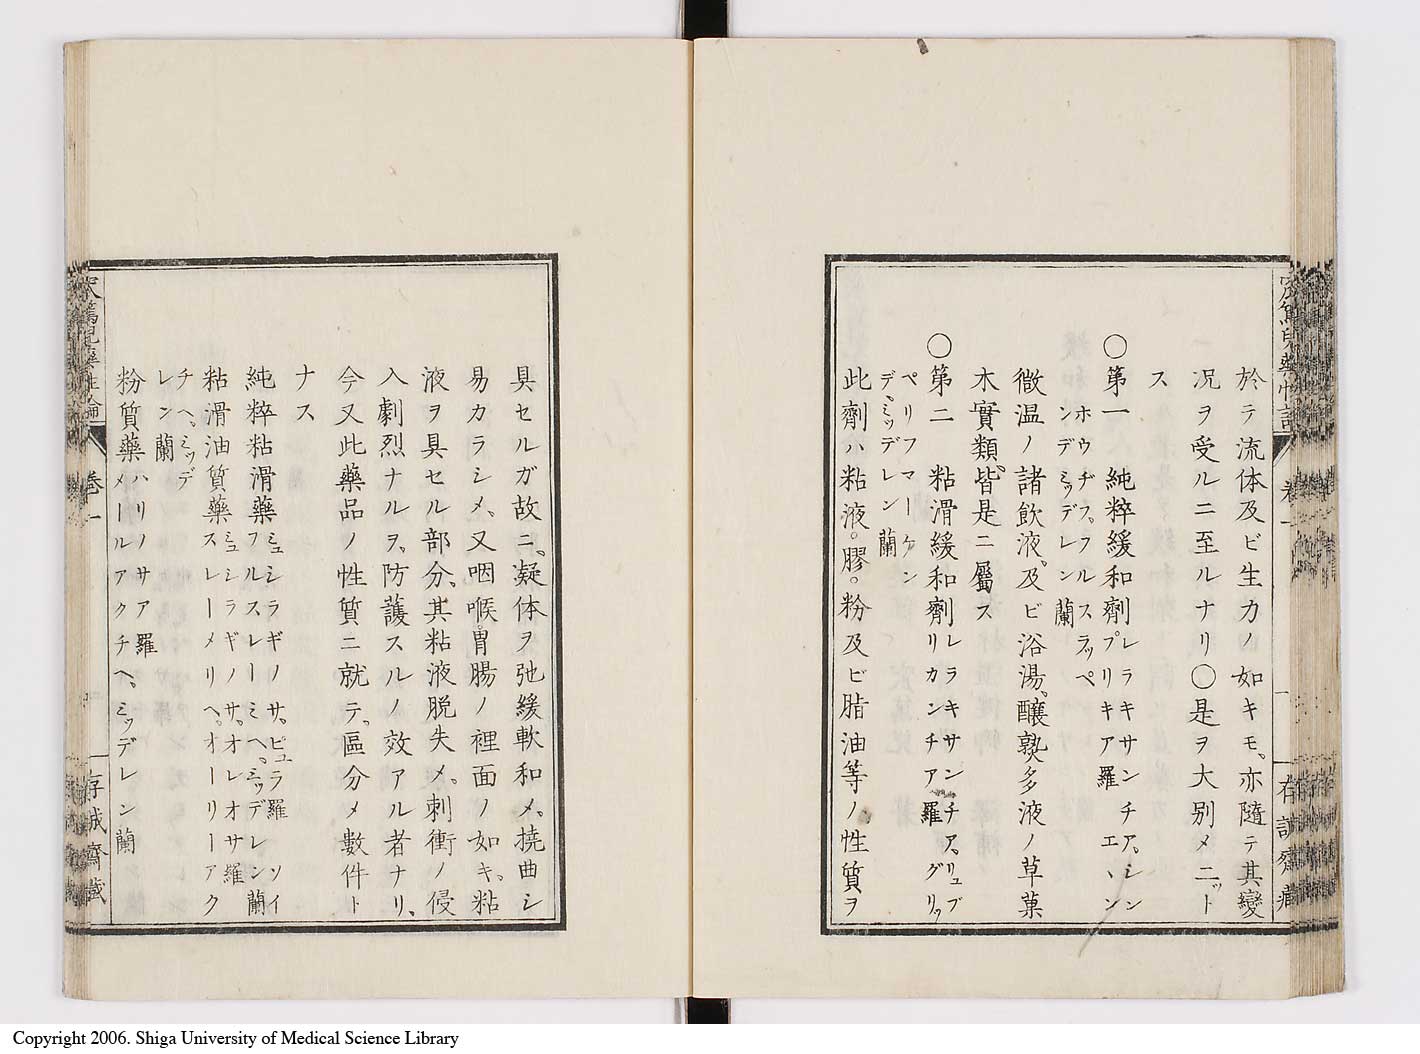 於テ流体及ビ生力ノ如キモ、亦隨テ其變
況ヲ受ルニ至ルナリ○是ヲ大別メニット
ス
○第一 純粹緩和劑レラキサンチア、シンプリキア羅 エヽンホウヂフ、フルスラッペンデミッデレン蘭
微温ノ諸飲液、及ビ浴湯、釀熟多液ノ草菓
木實類、皆是ニ屬ス
○第二 粘滑緩和劑レラキサンチア、リュブリカンチア羅 グリッペリフマーケンデ、ミッデレン蘭
此劑ハ粘液。膠。粉及ビ脂油等ノ性質ヲ
具セルガ故ニ、凝体ヲ弛緩軟和メ、撓曲シ
易カラシメ、又咽喉。胃腸ノ裡面ノ如キ、粘
液ヲ具セル部分、其粘液脱失メ、刺衝ノ侵
入劇烈ナルヲ、防護スルノ效アル者ナリ、
今又此藥品ノ性質ニ就テ、區分メ數件ト
ナス
純粹粘滑藥ミュシラギノサ、ピュラ羅 ソイフルスレーミヘ、ミッデレン蘭
粘滑油質藥ミュシラギノサ、オレオサ羅 スレーメリヘ、オーリーアクチヘ、ミッデレン蘭
粉質藥ハリノサア羅 メールアクチヘ、ミッデレン蘭
卷一
一
存誠齋藏
Copyright 2006. Shiga University of Medical Science Library